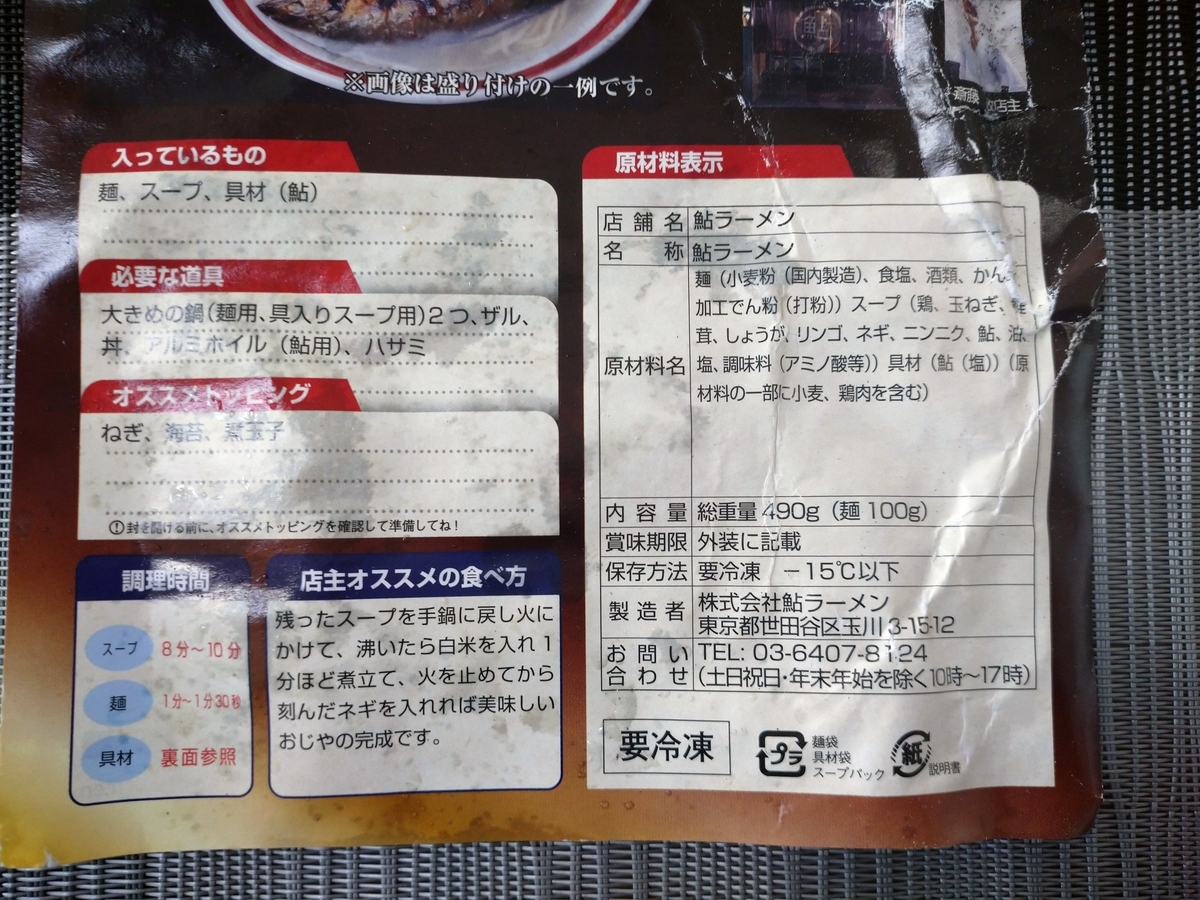 ※画像は盛り付けの一例です。
鮎
斎藤
店主
入っているもの
麺、スープ、具材（鮎）
必要な道具
大きめの鍋（麺用、具入りスープ用）2つ、ザル、
丼、アルミホイル（鮎用）、ハサミ
オススメトッピング
ねぎ、海苔、煮玉子
!封を開ける前に、オススメトッピングを確認して準備してね！
調理時間
スープ 8分〜10分
麺 1分〜1分30秒
具材 裏面参照
店主オススメの食べ方
残ったスープを手鍋に戻し火に
かけて、沸いたら白米を入れ1
分ほど煮立て、火を止めてから
刻んだネギを入れれば美味しい
おじやの完成です。
原材料表示
店舗名 鮎ラーメン
名称 鮎ラーメン
原材料名
麺（小麦粉（国内製造）、食塩、酒類、かん
加工でん粉（打粉））スープ（鶏、玉ねぎ、
茸、しょうが、リンゴ、ネギ、ニンニク、鮎、油、
塩、調味料（アミノ酸等））具材（鮎（塩））（原
材料の一部に小麦、鶏肉を含む）
内容量 総重量490g（麺100g）
賞味期限 外装に記載
保存方法 要冷凍 −15℃以下
製造者 株式会社鮎ラーメン
東京都世田谷区玉川3-15-12
お問い合わせ TEL: 03-6407-8124
（土日祝日・年末年始を除く10時〜17時）
要冷凍
プラ
麺袋
具材袋
スープパック
紙
説明書